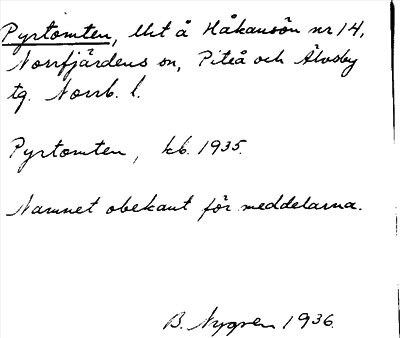 Pyrtomten, lht å Håkansön nr 14,
Norrfjärdens sn, Piteå och Älvsby
tg. Norrb. l.
Pyrtomten, kb. 1935.
Namnet obekant för meddelarna.
B. Nygren 1936.